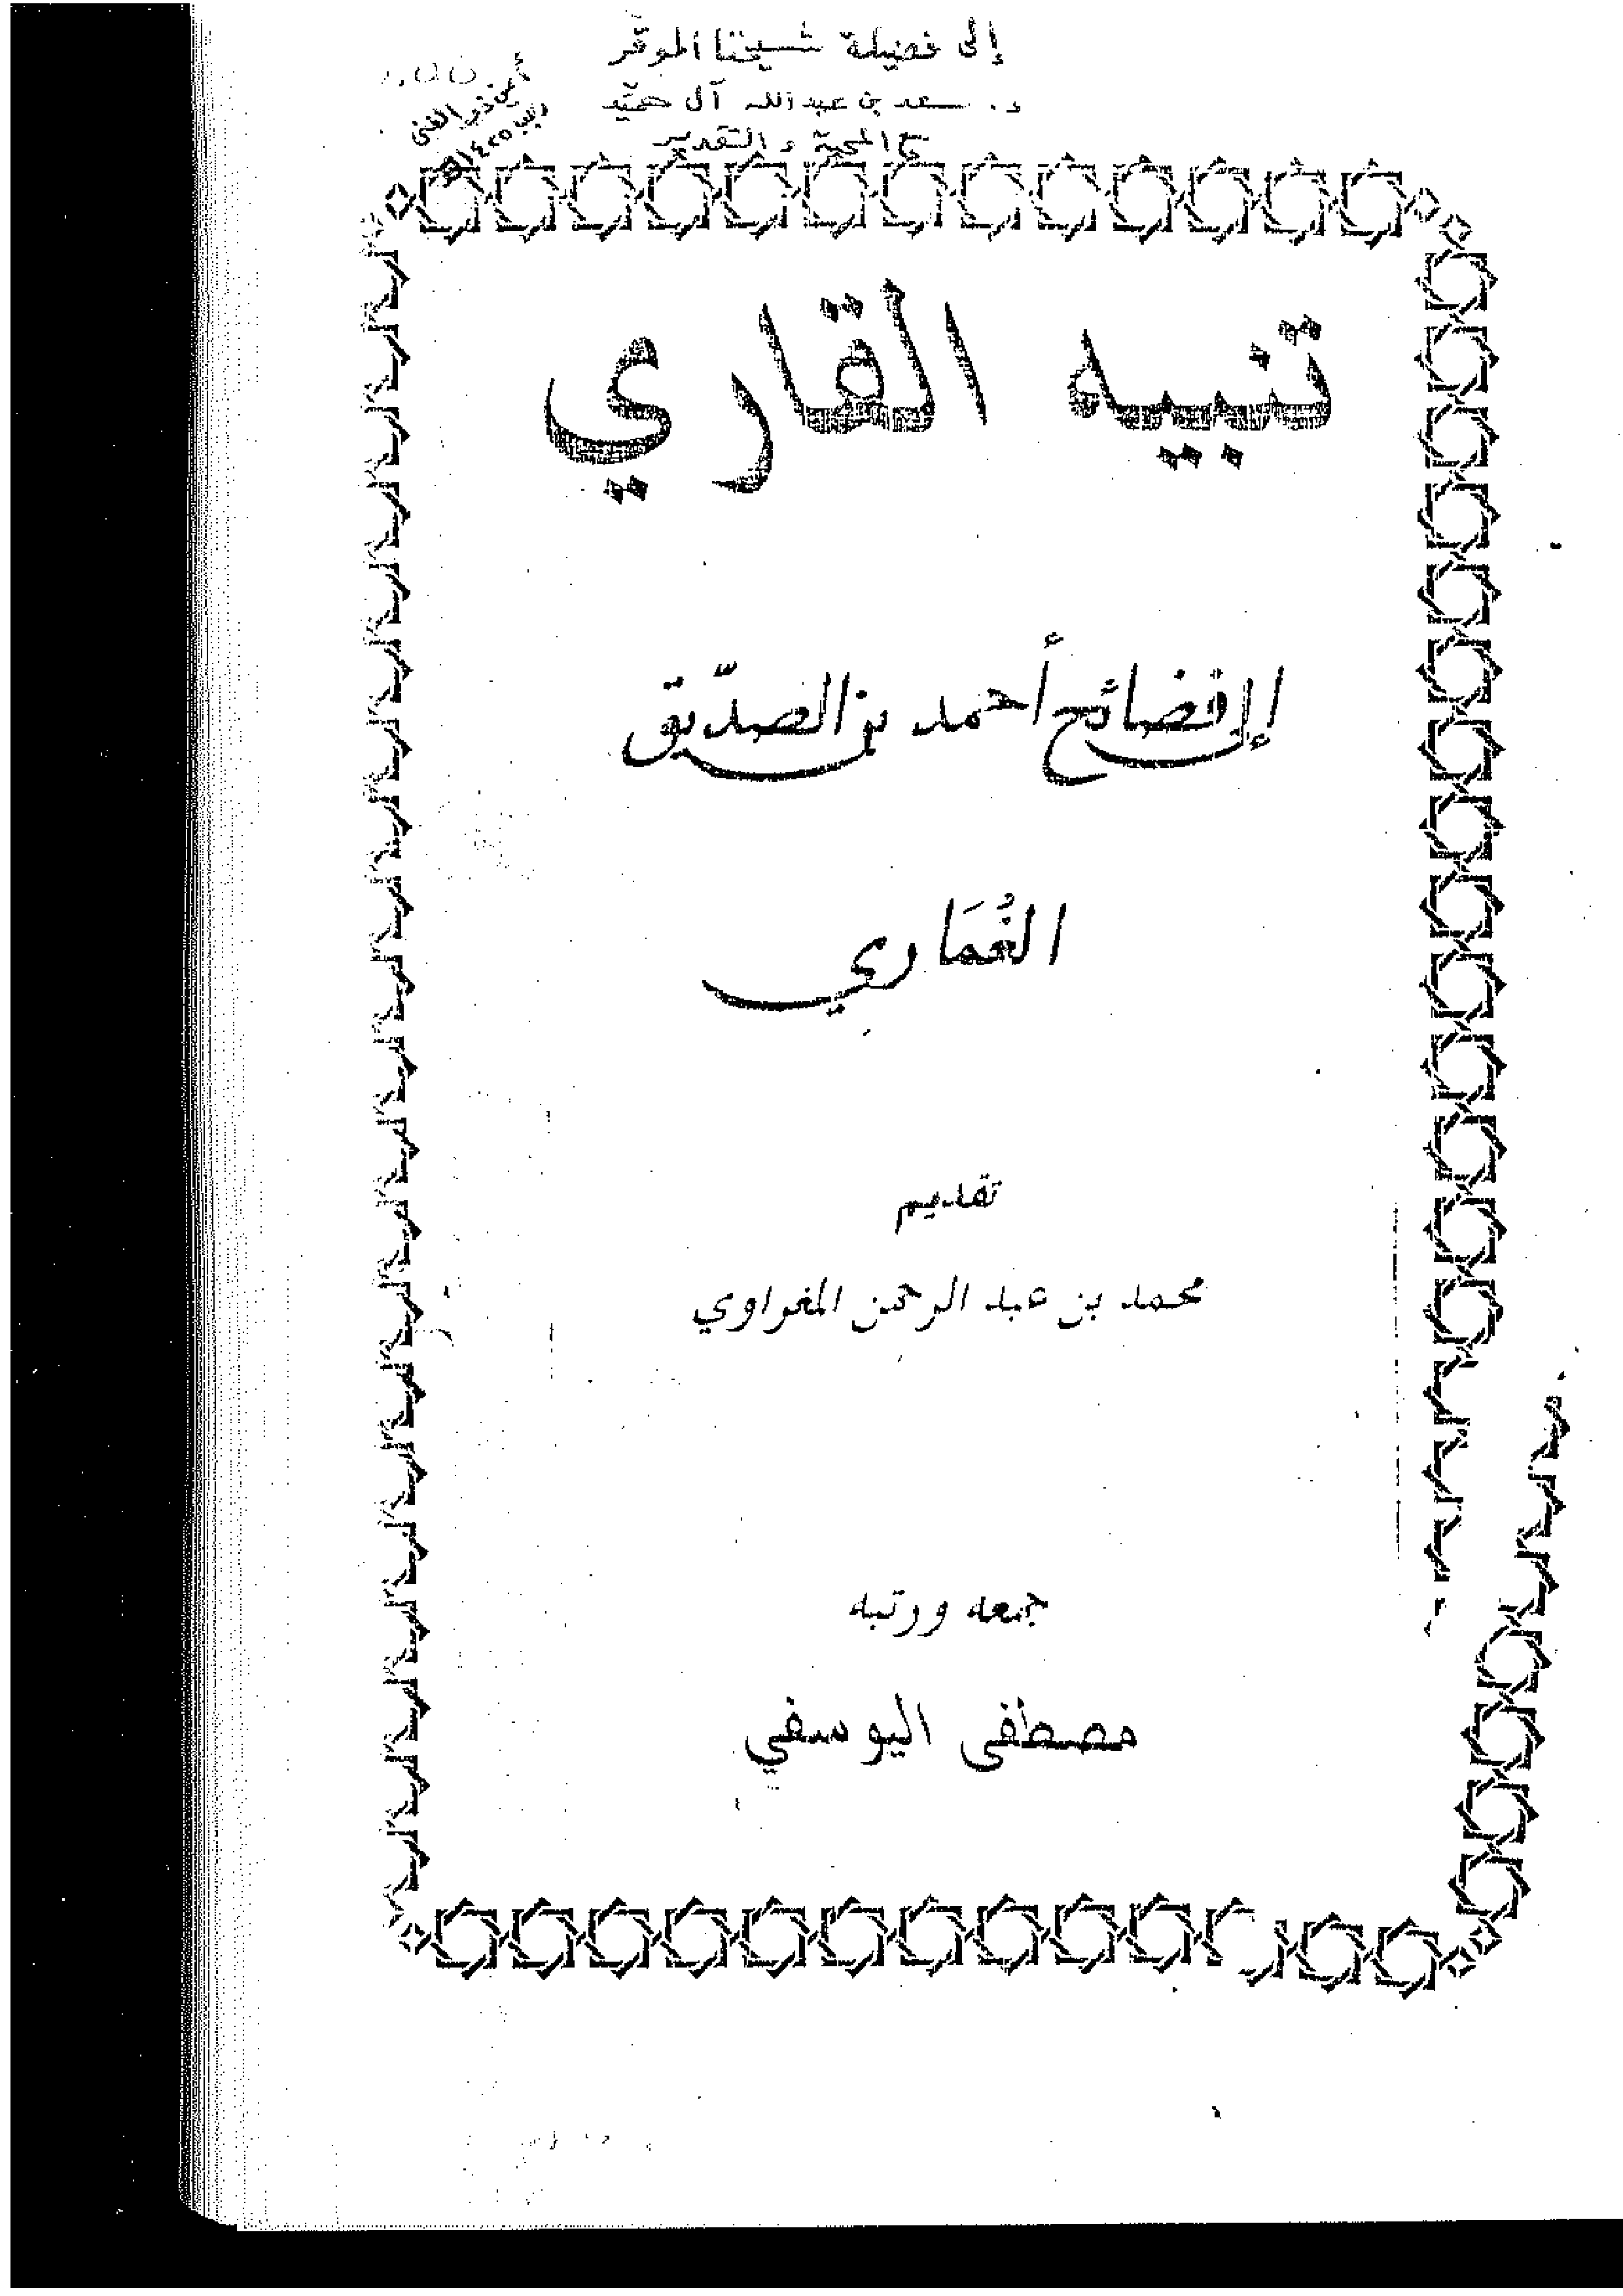 إلى فضيلة شيخنا الموقر
د. سعد بن عبد الله آل حميّد
مع المحبة والتقدير
تنبيه القاري
إلى فضائح أحمد بن الصدّيق
الغُمَاري
تقديم
محمد بن عبد الرحمن المغراوي
جمعه ورتبه
مصطفى اليوسفي